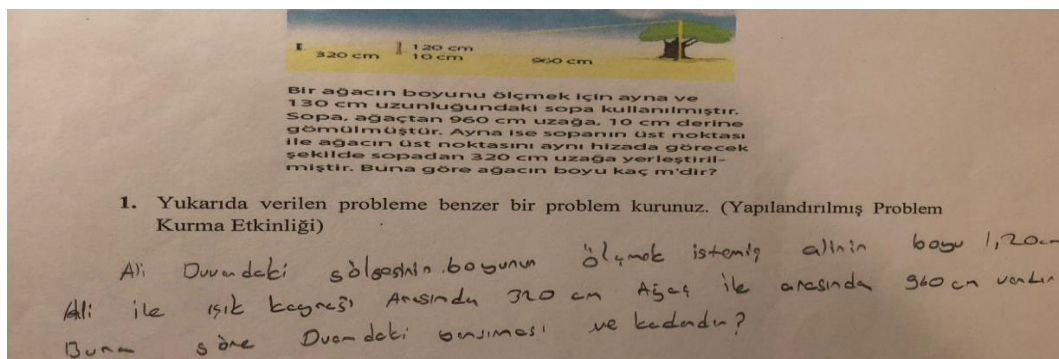 320 cm
120 cm
10 cm
960 cm
Bir ağacın boyunu ölçmek için ayna ve
130 cm uzunluğundaki sopa kullanılmıştır.
Sopa, ağaçtan 960 cm uzağa, 10 cm derine
gömülmüştür. Ayna ise sopanın üst noktası
ile ağacın üst noktasını aynı hizada görecek
şekilde sopadan 320 cm uzağa yerleştiril-
miştir. Buna göre ağacın boyu kaç m'dir?
1. Yukarıda verilen probleme benzer bir problem kurunuz. (Yapılandırılmış Problem
Kurma Etkinliği)
Ali Duvardaki gölgesinin boyunun ölçmek istemiş alinin boyu 1,20cm
Ali ile ışık kaynağı Arasında 320 cm Ağaç ile arasında 960 cm vardır
Buna göre Duvardaki yansıması ne kadardır?